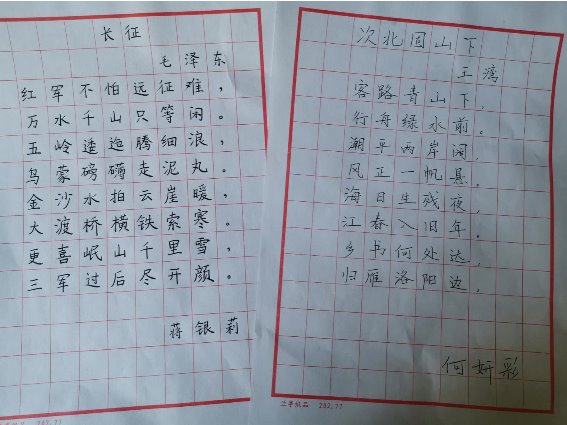 长征
毛泽东
红军不怕远征难,
万水千山只等闲。
五岭逶迤腾细浪,
乌蒙磅礴走泥丸。
金沙水拍云崖暖,
大渡桥横铁索寒。
更喜岷山千里雪,
三军过后尽开颜。
蒋银莉
兰亭纸品 202.77
次北固山下
王湾
客路青山下,
行舟绿水前。
潮平两岸阔,
风正一帆悬,
海日生残夜,
江春入旧年。
乡书何处达,
归雁洛阳边,
何妍彩
兰亭纸品 202.77